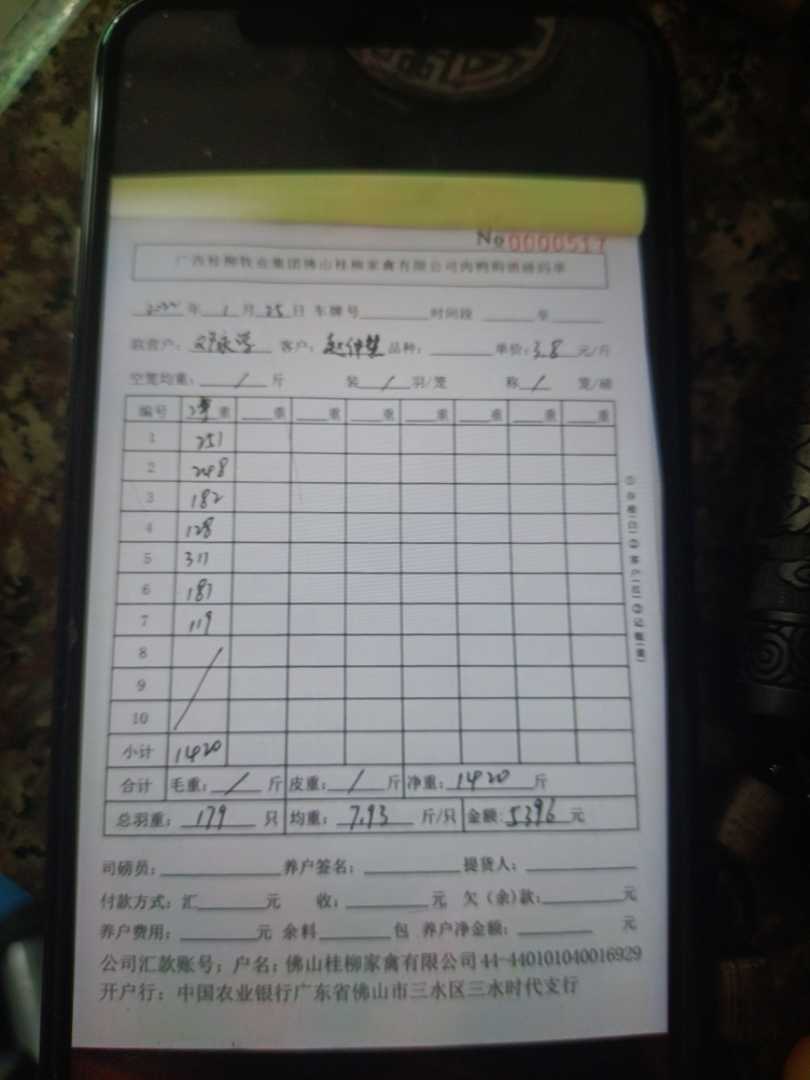 No 0000517
广西桂柳牧业集团佛山桂柳家禽有限公司肉鸭购销磅码单
年 1 月 25 日 车牌号 时间段 至
客户: 品种: 单价: 3.8 元/斤
空笼均重: / 斤 装 / 羽/笼 称 / 笼/磅
编号 净重 重 重 重 重 重 重 重
1 251
2 248
3 182
4 128
5
6 187
7 119
8
9
10
小计 1420
合计 毛重: / 斤 皮重: / 斤 净重: 1420 斤
总羽重: 179 只 均重: 7.93 斤/只 金额: 5396 元
司磅员: 养户签名: 提货人:
付款方式: 汇 元 收: 元 欠(余)款: 元
养户费用: 元 余料 包 养户净金额: 元
公司汇款账号: 户名: 佛山桂柳家禽有限公司 44-440101040016929
开户行: 中国农业银行广东省佛山市三水区三水时代支行
①存根(白)②客户(红)③记账(黄)